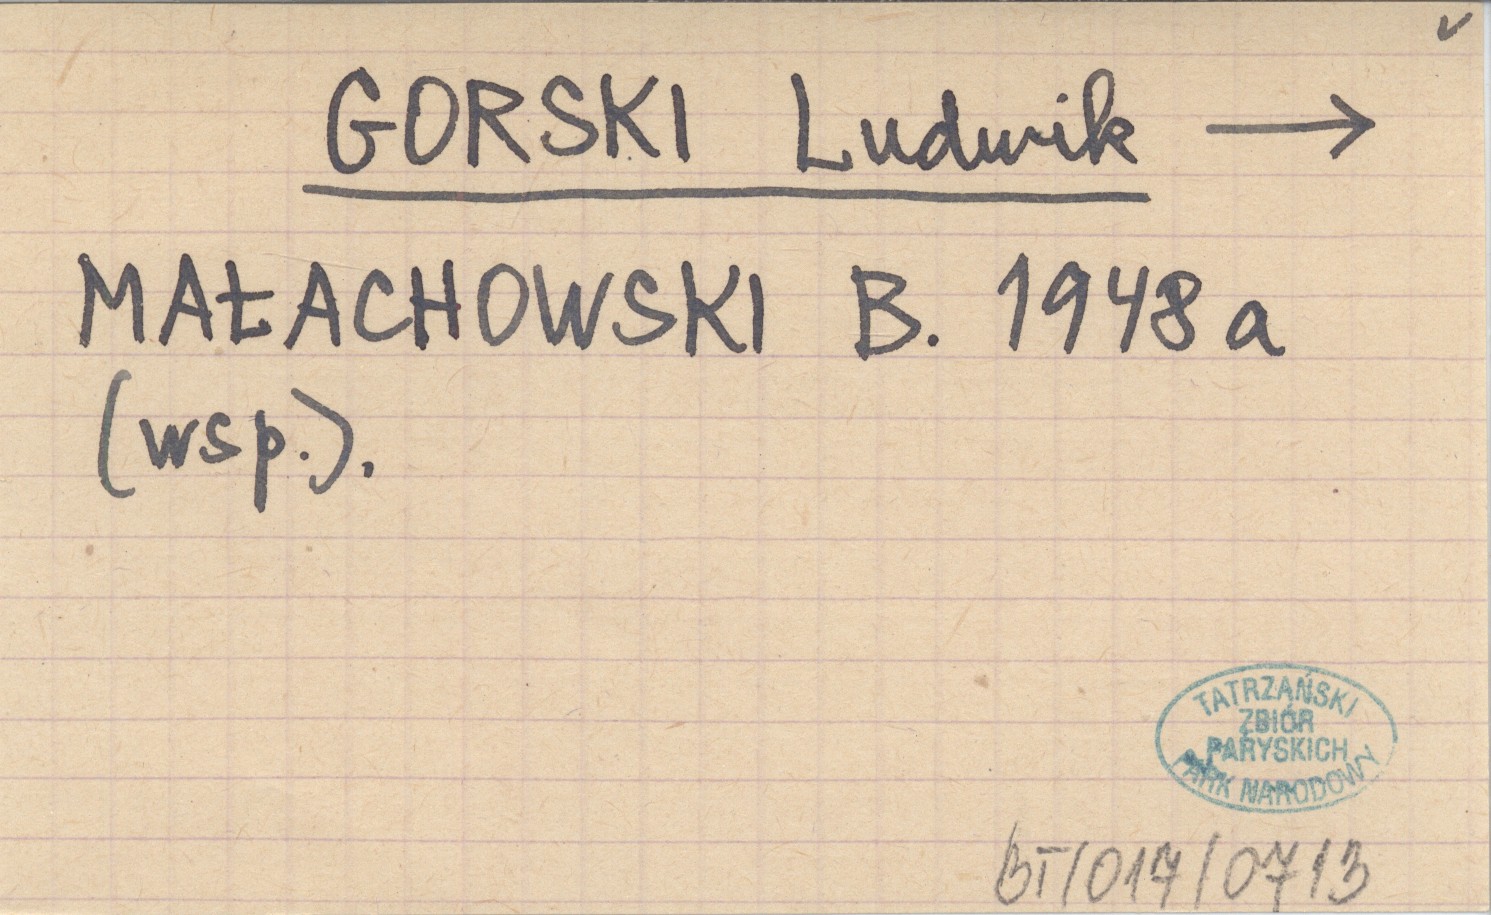 GORSKI Ludwik →
MAŁACHOWSKI B. 1948a
(wsp.).
TATRZAŃSKI
ZBIÓR
PARYSKICH
PARK NARODOWY
BT/017/0713